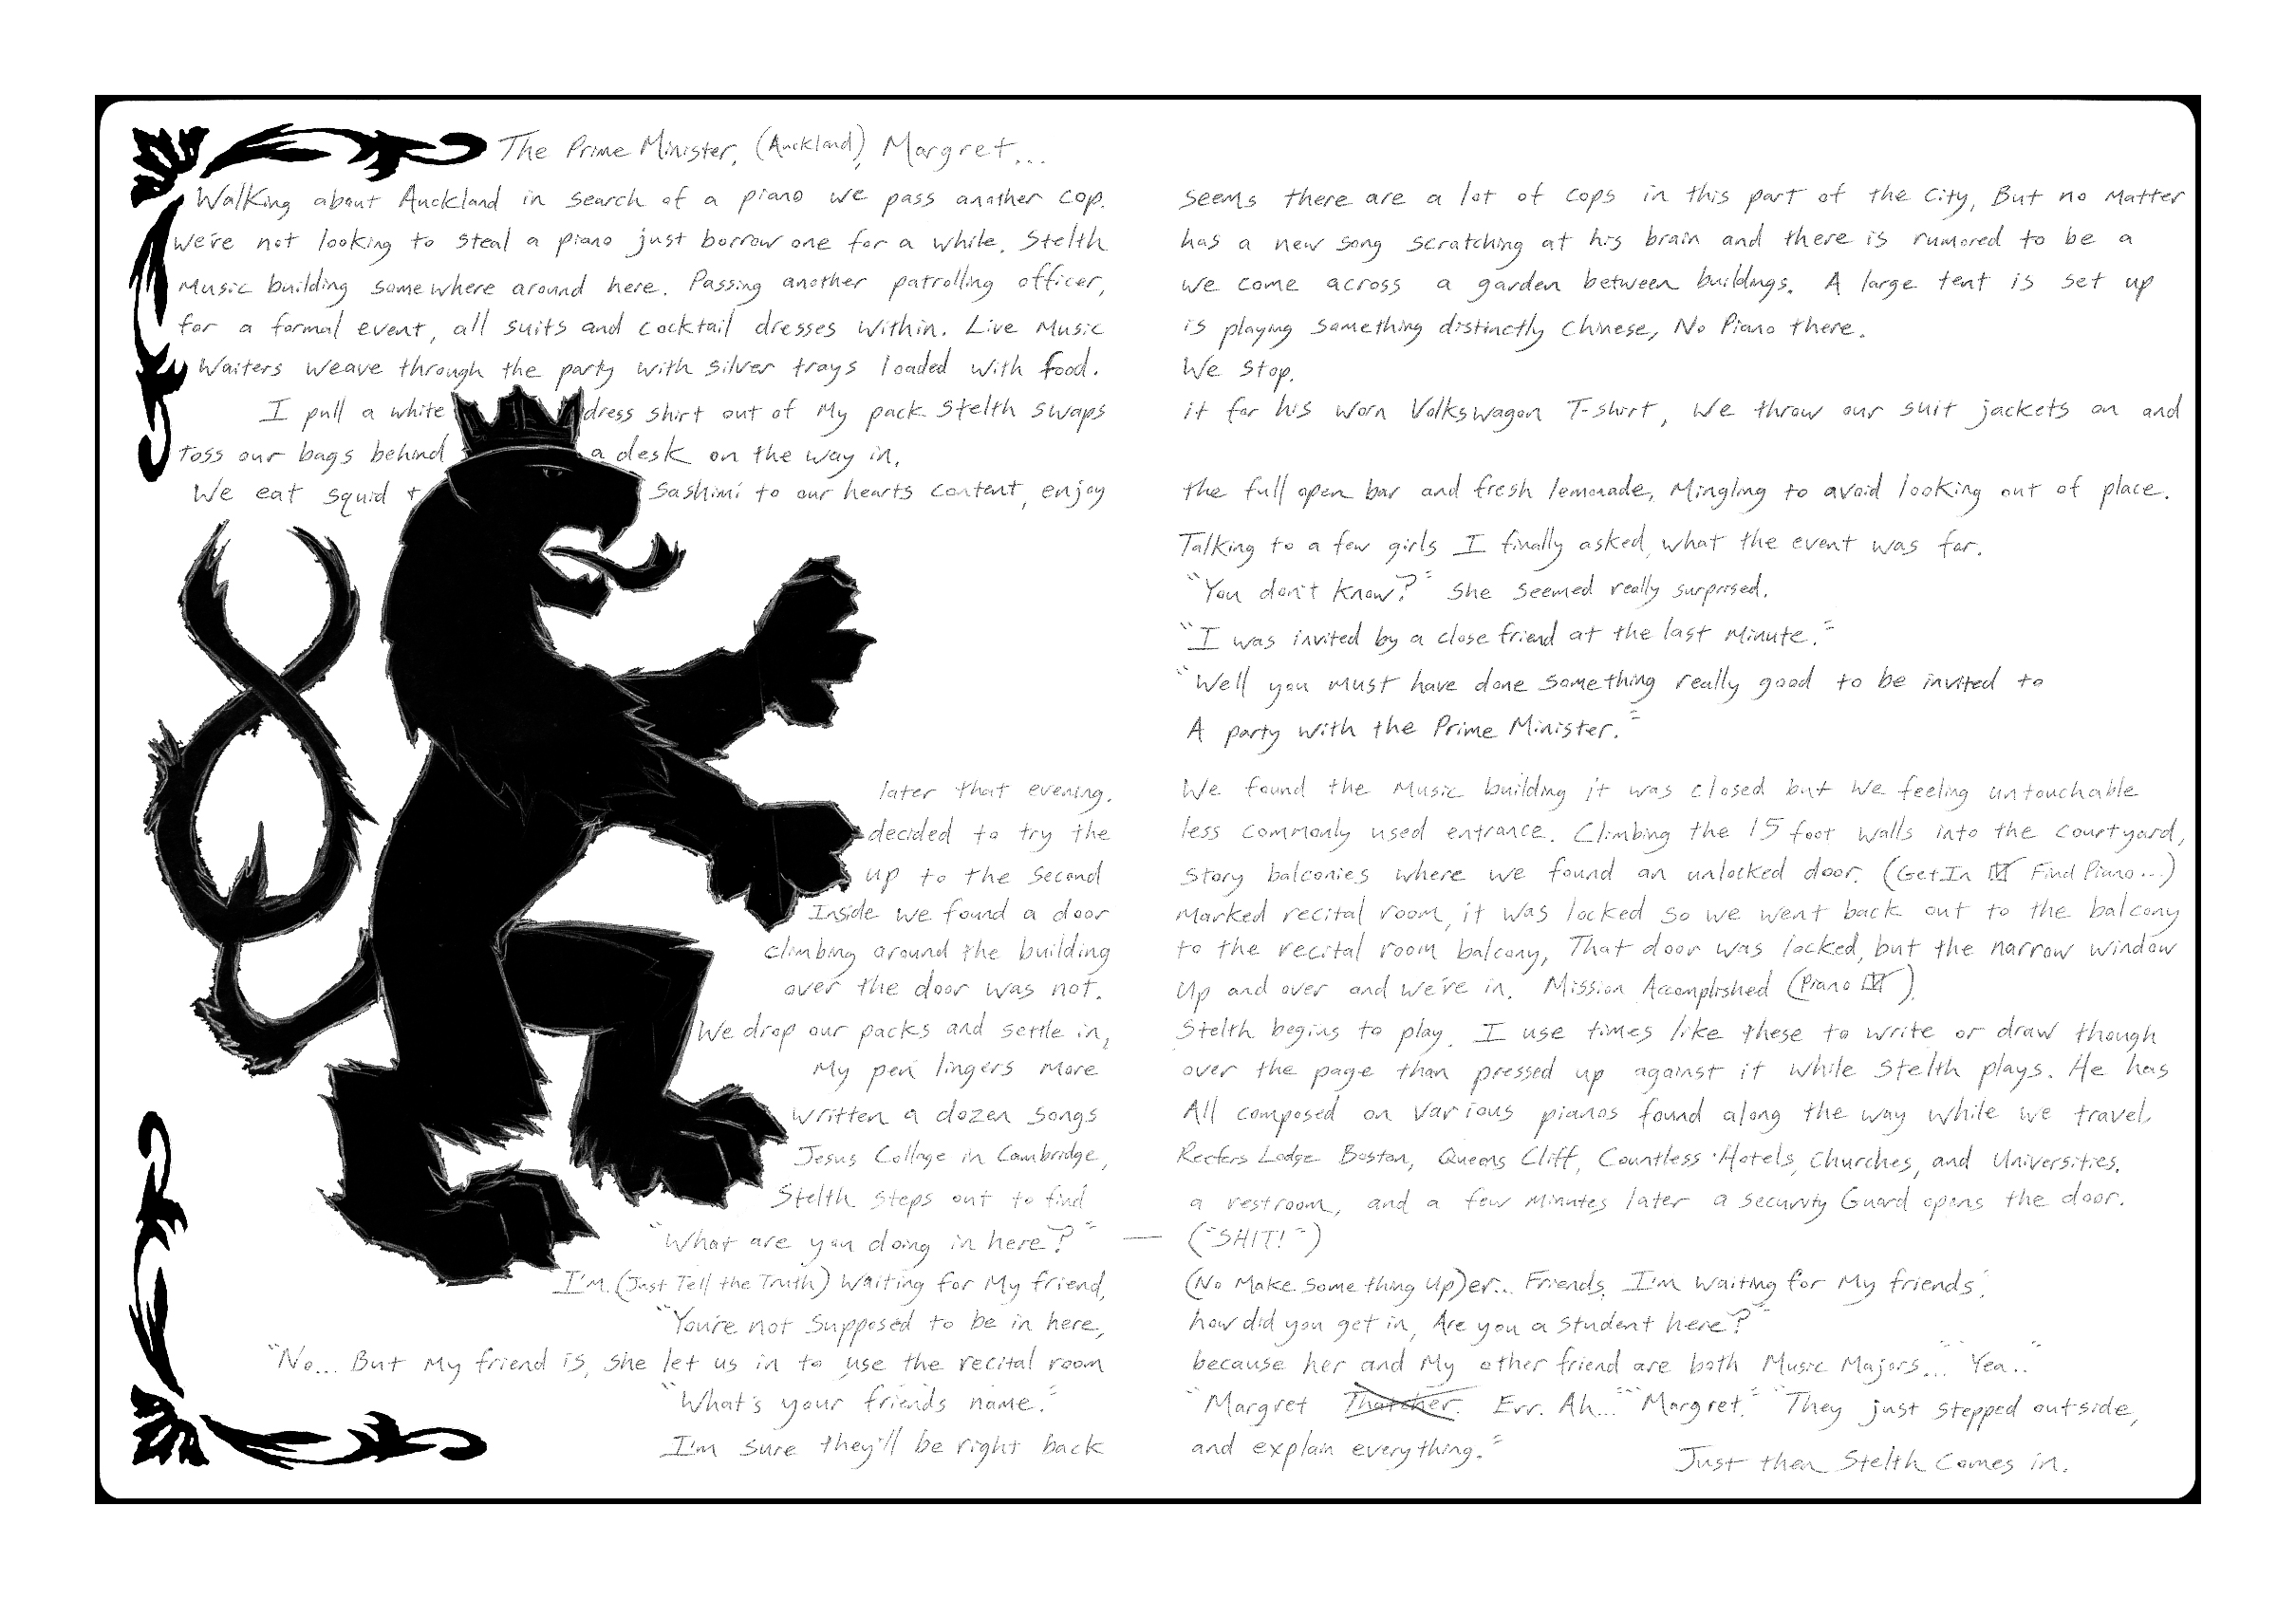 The Prime Minister, (Auckland), Margret...
Walking about Auckland in search of a piano we pass another cop. Seems there are a lot of cops in this part of the City, But no Matter
We're not looking to steal a piano just borrow one for a while. Stelth has a new song scratching at his brain and there is rumored to be a
Music building somewhere around here. Passing another patrolling officer, we come across a garden between buildings. A large tent is set up
for a formal event, all suits and cocktail dresses within. Live Music is playing something distinctly Chinese, No Piano there.
Waiters weave through the party with silver trays loaded with food. We stop.
I pull a white dress shirt out of My pack Stelth swaps it for his worn Volkswagon T-shirt, We throw our suit jackets on and
toss our bags behind a desk on the way in.
We eat squid + Sashimi to our hearts content, enjoy the full open bar and fresh lemonade, Mingling to avoid looking out of place.
Talking to a few girls I finally asked, what the event was for.
"You don't know?" She seemed really surprised.
"I was invited by a close friend at the last Minute."
"Well you must have done something really good to be invited to
A party with the Prime Minister."
later that evening. We found the Music building it was closed but we feeling untouchable
decided to try the less commonly used entrance. Climbing the 15 foot walls into the courtyard,
up to the second story balconies where we found an unlocked door. (Get In ☑ Find Piano...)
Inside we found a door Marked recital room, it was locked so we went back out to the balcony
climbing around the building to the recital room balcony, That door was locked, but the narrow window
over the door was not. Up and over and we're in. Mission Accomplished (Piano ☑).
We drop our packs and settle in, Stelth begins to play. I use times like these to write or draw though
My pen lingers More over the page than pressed up against it while Stelth plays. He has
written a dozen songs All composed on various pianos found along the way while we travel,
Jesus College in Cambridge, Reefers Lodge Boston, Queens Cliff, Countless Hotels, Churches, and Universities.
Stelth steps out to find a restroom, and a few minutes later a security Guard opens the door.
"What are you doing in here?" — ("SHIT!")
I'm (Just Tell the Truth) Waiting for My friend, (No Make Something Up) er... Friends. I'm Waiting for My friends.
"You're not supposed to be in here, how did you get in, Are you a student here?"
"No... But My friend is, she let us in to use the recital room because her and My other friend are both Music Majors..." "Yea.."
"What's your friends name." "Margret Thatcher. Err. Ah..." "Margret." "They just stepped outside,
I'm sure they'll be right back and explain everything."
Just then Stelth Comes in.